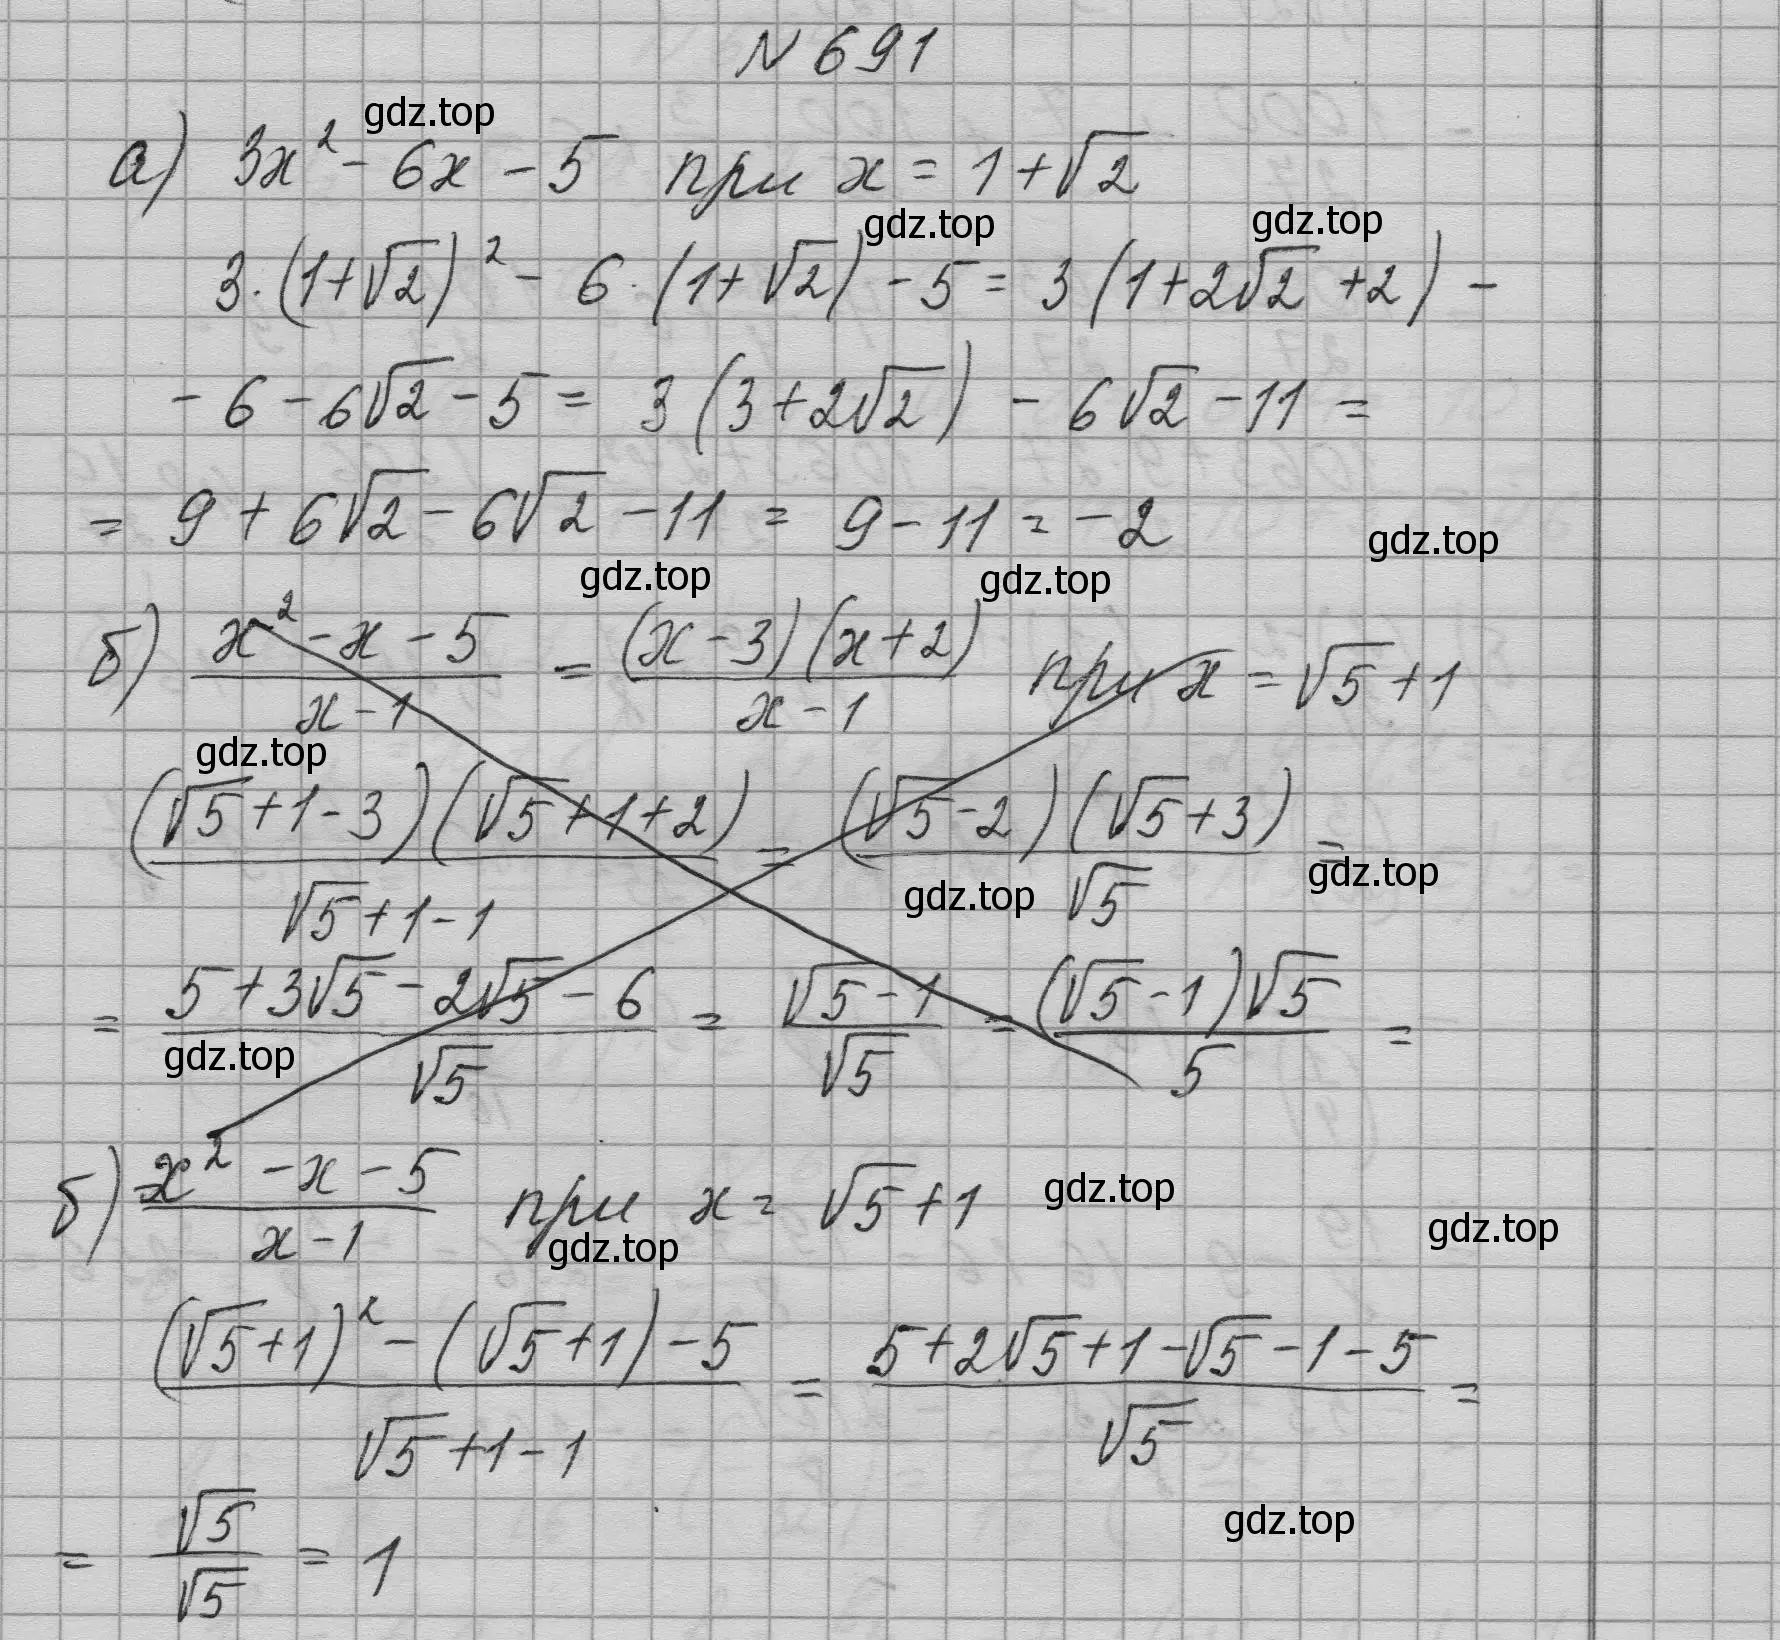 N 691
gdz.top
а) 3x² - 6x - 5 при x = 1 + √2
gdz.top gdz.top
3·(1+√2)² - 6·(1+√2) - 5 = 3(1+2√2+2) -
- 6 - 6√2 - 5 = 3(3+2√2) - 6√2 - 11 =
= 9 + 6√2 - 6√2 - 11 = 9 - 11 = -2
gdz.top
gdz.top gdz.top
б) (x² - x - 5)/(x - 1) = ((x-3)(x+2))/(x - 1) при x = √5 + 1
gdz.top
((√5+1-3)(√5+1+2))/(√5+1-1) = ((√5-2)(√5+3))/√5 =
gdz.top gdz.top
= (5+3√5-2√5-6)/√5 = (√5-1)/√5 = ((√5-1)√5)/5 =
gdz.top
б) (x² - x - 5)/(x - 1) при x = √5 + 1
gdz.top
gdz.top gdz.top
((√5+1)² - (√5+1) - 5)/(√5+1-1) = (5+2√5+1-√5-1-5)/√5 =
gdz.top
= √5/√5 = 1